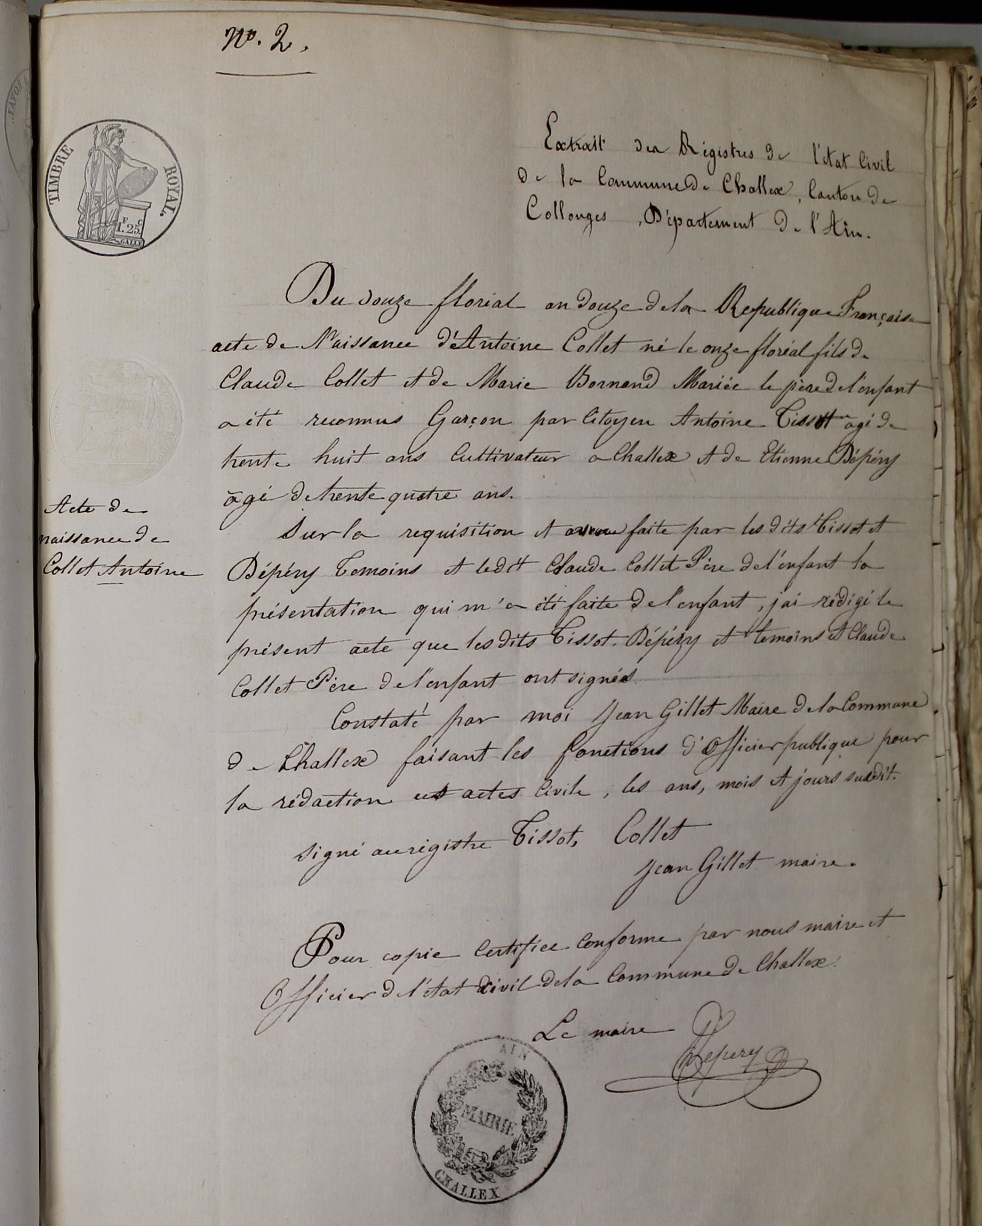 No. 2.
TIMBRE ROYAL.
1F. 25c
Extrait des Régistres de l'état Civil
de la Commune de Challex, Canton de
Collonges, Département de l'Ain.
Du douze floréal an douze de la République Française
acte de Naissance d'Antoine Collet né le onze floréal fils de
Claude Collet et de Marie Bornand Mariée le père de l'enfant
a été reconnus Garçon par Citoyen Antoine Tissot agé de
trente huit ans Cultivateur a Challex et de Etienne Dépéry
âgé de trente quatre ans.
Acte de
naissance de
Collet Antoine
Sur la requisition et faite par les dits Tissot et
Dépéry Temoins et ledit Claude Collet Père de l'enfant la
présentation qui m'a été faite de l'enfant, j'ai rédigé le
présent acte que les dits Tissot. Dépéry et temoins et Claude
Collet Père de l'enfant ont signés
Constaté par moi Jean Gillet Maire de la Commune
de Challex faisant les fonctions d'Officier publique pour
la rédaction actes Civile, les ans, mois et jours susdit.
signé au régistre Tissot, Collet
Jean Gillet maire.
Pour copie certifiée conforme par nous maire et
Officier de l'état civil de la Commune de Challex.
Le maire
Depery
AIN
MAIRIE
CHALLEX